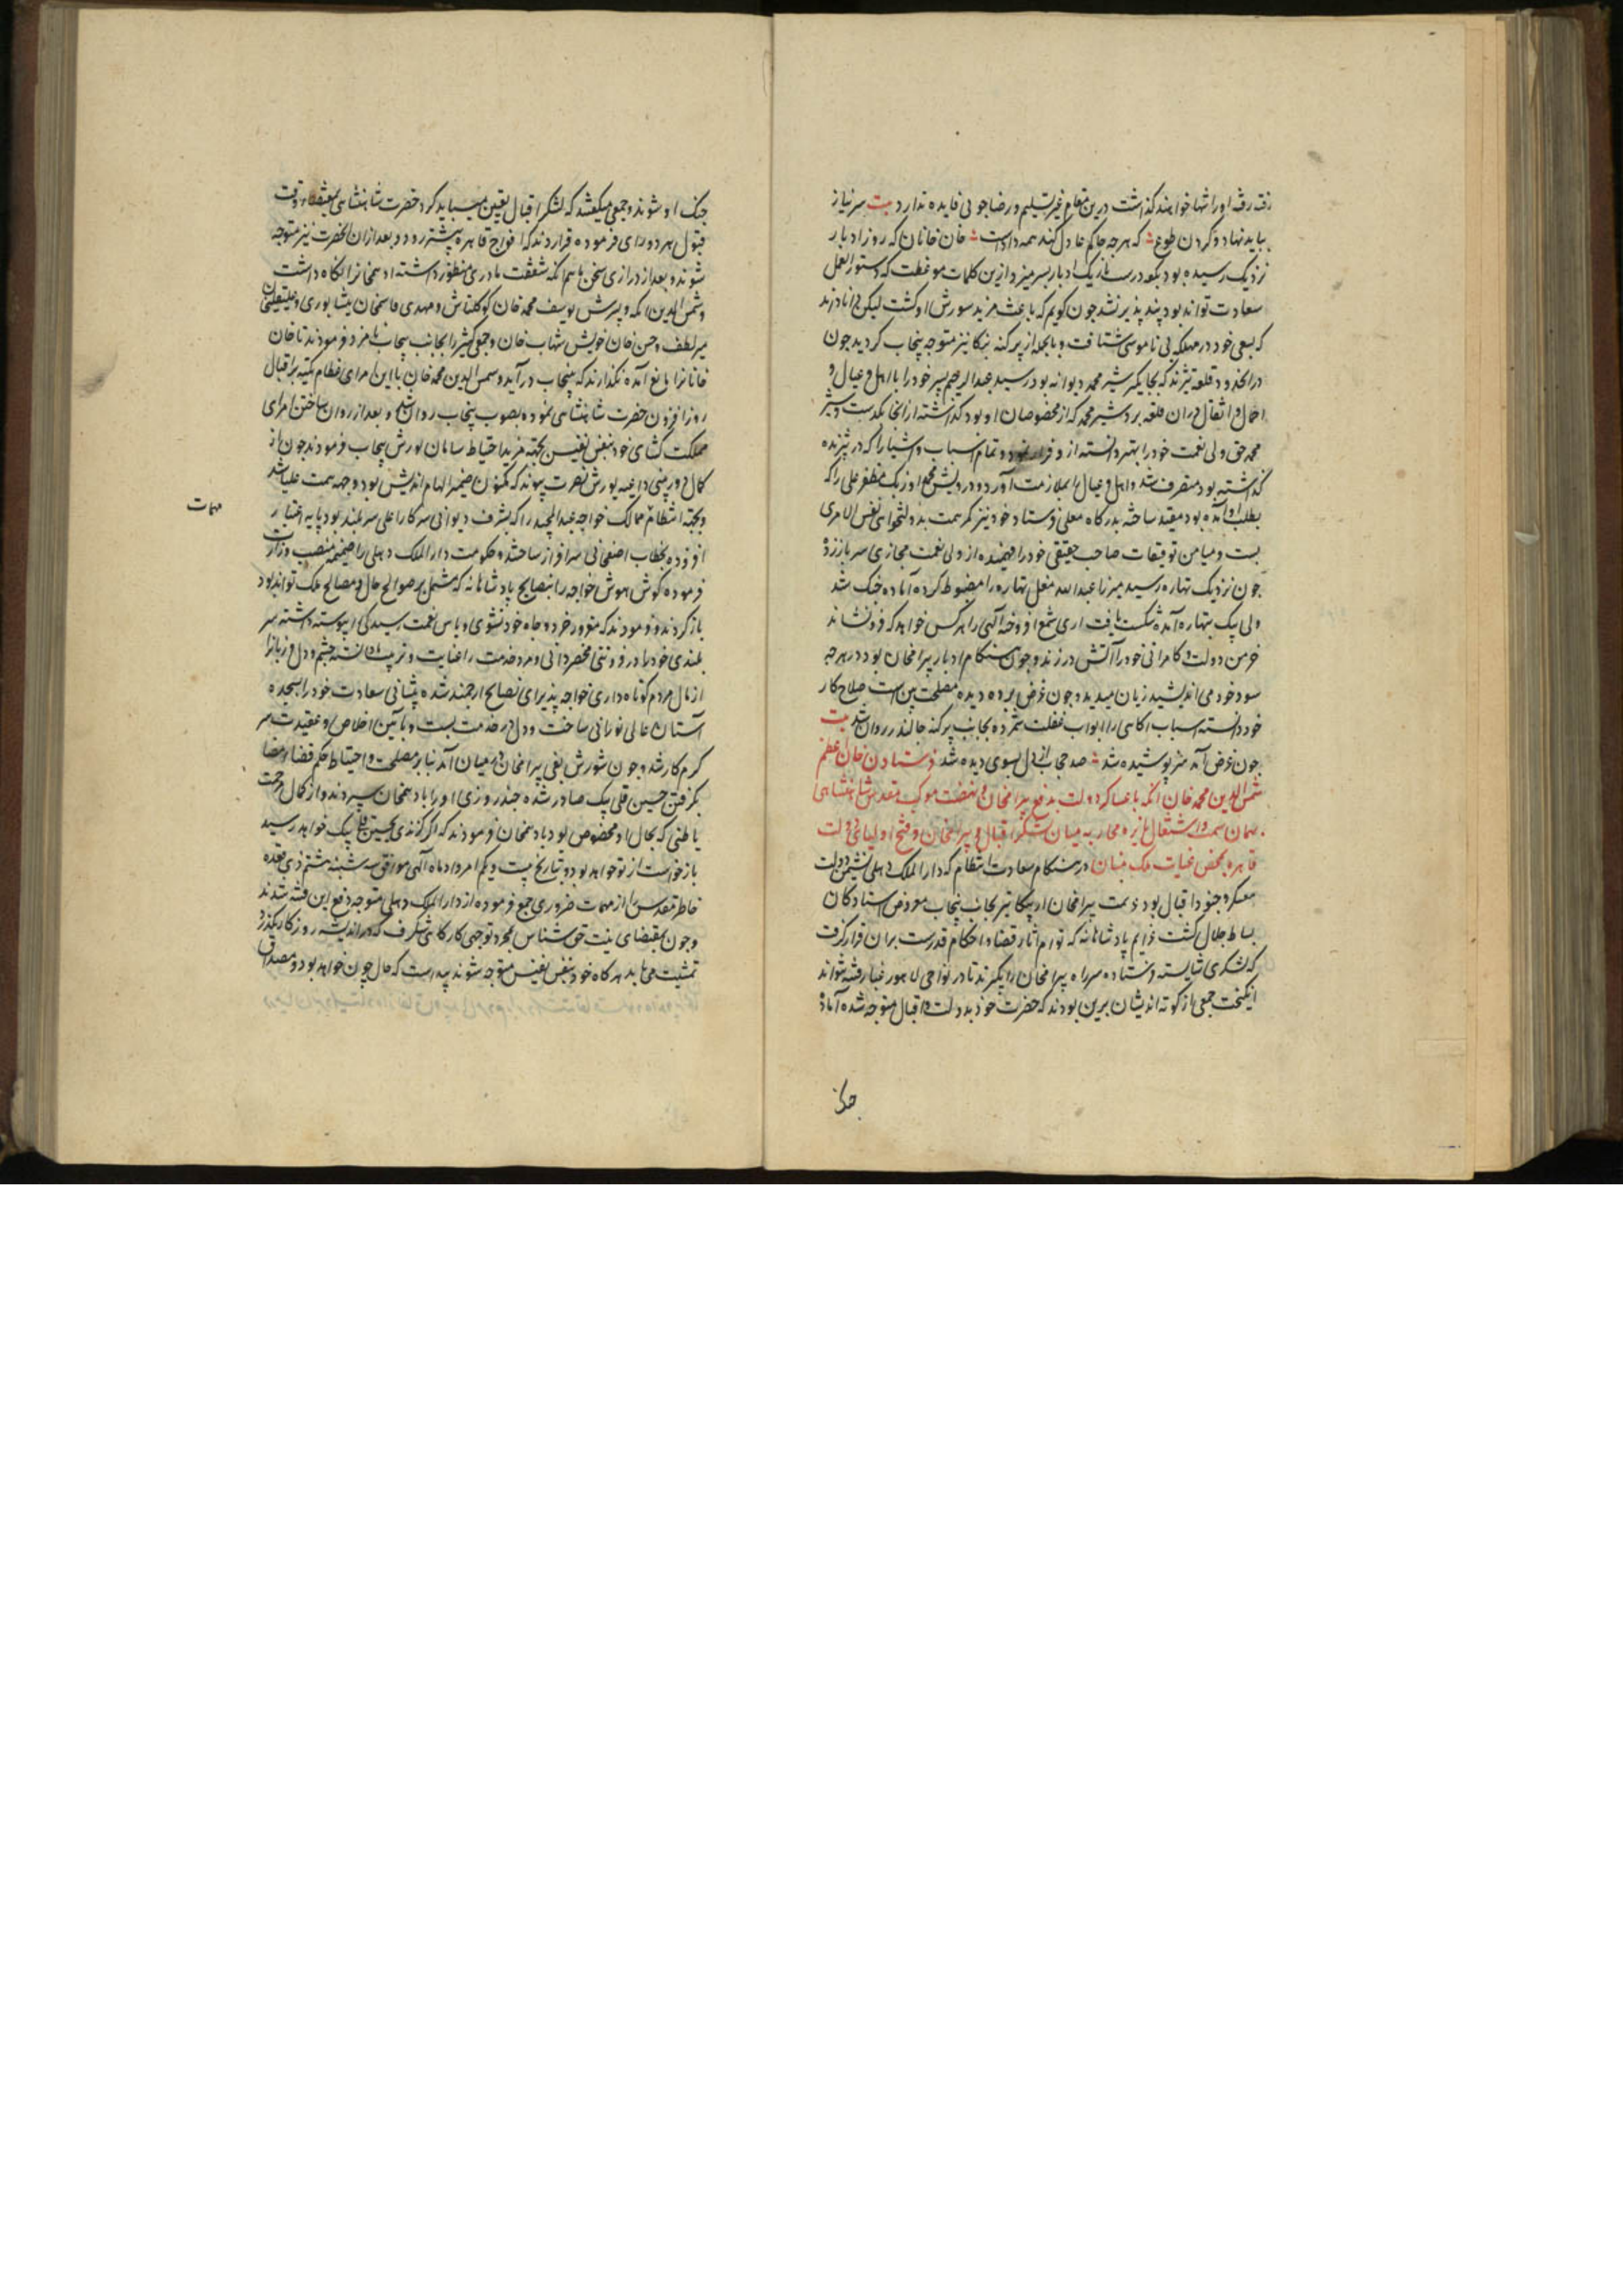 رفته رفته او را تنها خواهند گذاشت درین مقام غیر تسلیم و رضاجویی فایده ندارد بیت سر نیاز
بباید نهاد و گردن طوع که هرچه حاکم عادل کند همه دادست خان خانان که روز ادبار
نزدیک رسیده بود ازین کلمات موعظت که دستور العمل
سعادت تواند بود پند پذیر نشد چون گویم که باعث مزید شورش او گشت
که بسعی خود در مهلکه بی ناموسی شتافت و بالجمله از پرگنه بیکانیر متوجه پنجاب گردید چون
قلعه تبرنده که بجایگیر شیر محمد دیوانه بود رسید عبد الرحیم پسر خود را با اهل و عیال و
احمال و اثقال دران قلعه برد شیر محمد که از مخصوصان او بود گذاشته از انجا بگذشت و شیر
محمد حق ولی نعمت خود را بهتر دانسته ازو فرار نمود و تمام اسباب و اشیا را که در تبرنده
گذاشته بود متصرف شد و اهل و عیال را بملازمت آورد و درویش محمد اوزبک مظفر علی را که
بطلب او آمده بود مقید ساخته بدرگاه معلی فرستاد و خود نیز کمر همت بدولتخواهی نفس الامری
بست و میامن توفیقات صاحب حقیقی خود را فهمیده از ولی نعمت مجازی سر باز زد
چون نزدیک تهاره رسید میرزا عبد الله مغل تهاره را مضبوط کرده آماده جنگ شد
ولی بیک بتهاره آمده شکست یافت اری شمع افروخته آلهی را هر کس خواهد که فرو نشاند
خرمن دولت و کامرانی خود را آتش در زند و چون هنگام ادبار بیرامخان بود در هرچه
سود خود می اندیشید زیان میدید و چون غرض پرده دیده مصلحت بین است صلاح کار
خود دانسته اسباب اگاهی را ابواب غفلت شمرده بجانب پرگنه جالندر روان شد بیت
چون غرض آمد هنر پوشیده شد صد حجاب از دل بسوی دیده شد فرستادن خان اعظم
شمس الدین محمد خان اتکه با عساکر دولت بدفع بیرامخان و نهضت موکب مقدس شاهنشاهی
بهمان سمت و اشتعال نایره محاربه میان لشکر اقبال و بیرامخان و فتح اولیای دولت
قاهره بمحض عنایات ملک منان در هنگام سعادت انتظام که دار الملک دهلی نشیمن دولت
معسکر و جنود اقبال بود عزیمت بیرامخان از بیکانیر بجانب پنجاب معروض استادگان
بساط جلال گشت عزایم پادشاهانه که توام آثار قضا و احکام قدرست بران قرار گرفت
که لشکری شایسته فرستاده سر راه بیرامخان را بگیرند تا در نواحی لاهور غبار فتنه نتواند
انگیخت جمعی از کوته اندیشان برین بودند که حضرت خود بدولت و اقبال متوجه شده آماده
جنگ
جنگ او شوند و جمعی میگفتند که لشکر اقبال تعین میباید کرد حضرت شاهنشاهی
قبول هر دو رای فرموده قرار دادند که افواج قاهره پیشتر رود و بعد ازان انحضرت نیز متوجه
شوند و بعد از درازی سخن ماهم انکه شفقت مادری منظور داشته ادهمخانرا نگاه داشت
و شمس الدین اتکه و پسرش یوسف محمد خان کوکلتاش و مهدی قاسمخان نیشابوری
میر لطیف و حسن خان خویش شهاب خان و جمعی کثیر را بجانب پنجاب نامزد فرمودند تا خان
خانانرا مانع آمده نگذارند که بپنجاب در آید و شمس الدین محمد خان با این امرای عظام تکیه بر اقبال
روز افزون حضرت شاهنشاهی نموده بصوب پنجاب روان شد و بعد از روان ساختن امرای
مملکت گشای خود بنفس نفیس بجهته مزید احتیاط سامان یورش پنجاب فرمودند چون از
کمال دوربینی داعیه یورش نصرت پیوند که مکنون ضمیر الهام اندیش بود وجهه همت علیا شد
مهمات
و بجهته انتظام ممالک خواجه عبد المجید را که بشرف دیوانی سرکار اعلی سر بلند بود پایه اعتبار
افزوده بخطاب اصفخانی سرافراز ساختند و حکومت دار الملک دهلی را ضمیمه منصب وزارت
فرموده گوش هوش خواجه را بنصایح پادشاهانه که مشتمل بر صوالح حال و مصالح ملک تواند بود
باز کردند و فرمودند که مغرور خرد و جاه خود نشوی و پاس نعمت رسیدگی را پیوسته داشته سر
بلندی خود را در فروتنی منحصر دانی و مرد خدمت را عنایت و تربیت ما دانسته چشم و دل و زبانرا
از مال مردم کوتاه داری خواجه پذیرای نصایح ارجمند شده پیشانی سعادت خود را بسجده
آستان عالی نورانی ساخت و دل در خدمت بست و بآیین اخلاص و عقیدت سر
گرم کار شد و چون شورش بغی بیرامخان در میان آمد بنابر مصلحت و احتیاط حکم قضا امضا
بگرفتن حسین قلی بیک صادر شده چند روزی او را بادهمخان سپردند و از کمال مرحمت
باطنی که بحال او مخصوص بود بادهمخان فرمودند که اگر گزندی بحسین قلی بیک خواهد رسید
بازخواست از تو خواهد بود و بتاریخ بیست و یکم امرداد ماه آلهی موافق سه شنبه هشتم ذی قعده
خاطر مقدس را از مهمات ضروری جمع فرموده از دار الملک دهلی متوجه دفع این فتنه شدند
و چون بمقتضای نیت حق شناس بمجرد توجهی کارکای شگرف که در اندیشه روزگار نگذرد
تمشیت می یابد هرگاه خود بنفس نفیس متوجه شوند پیداست که حال چون خواهد بود و مصداق